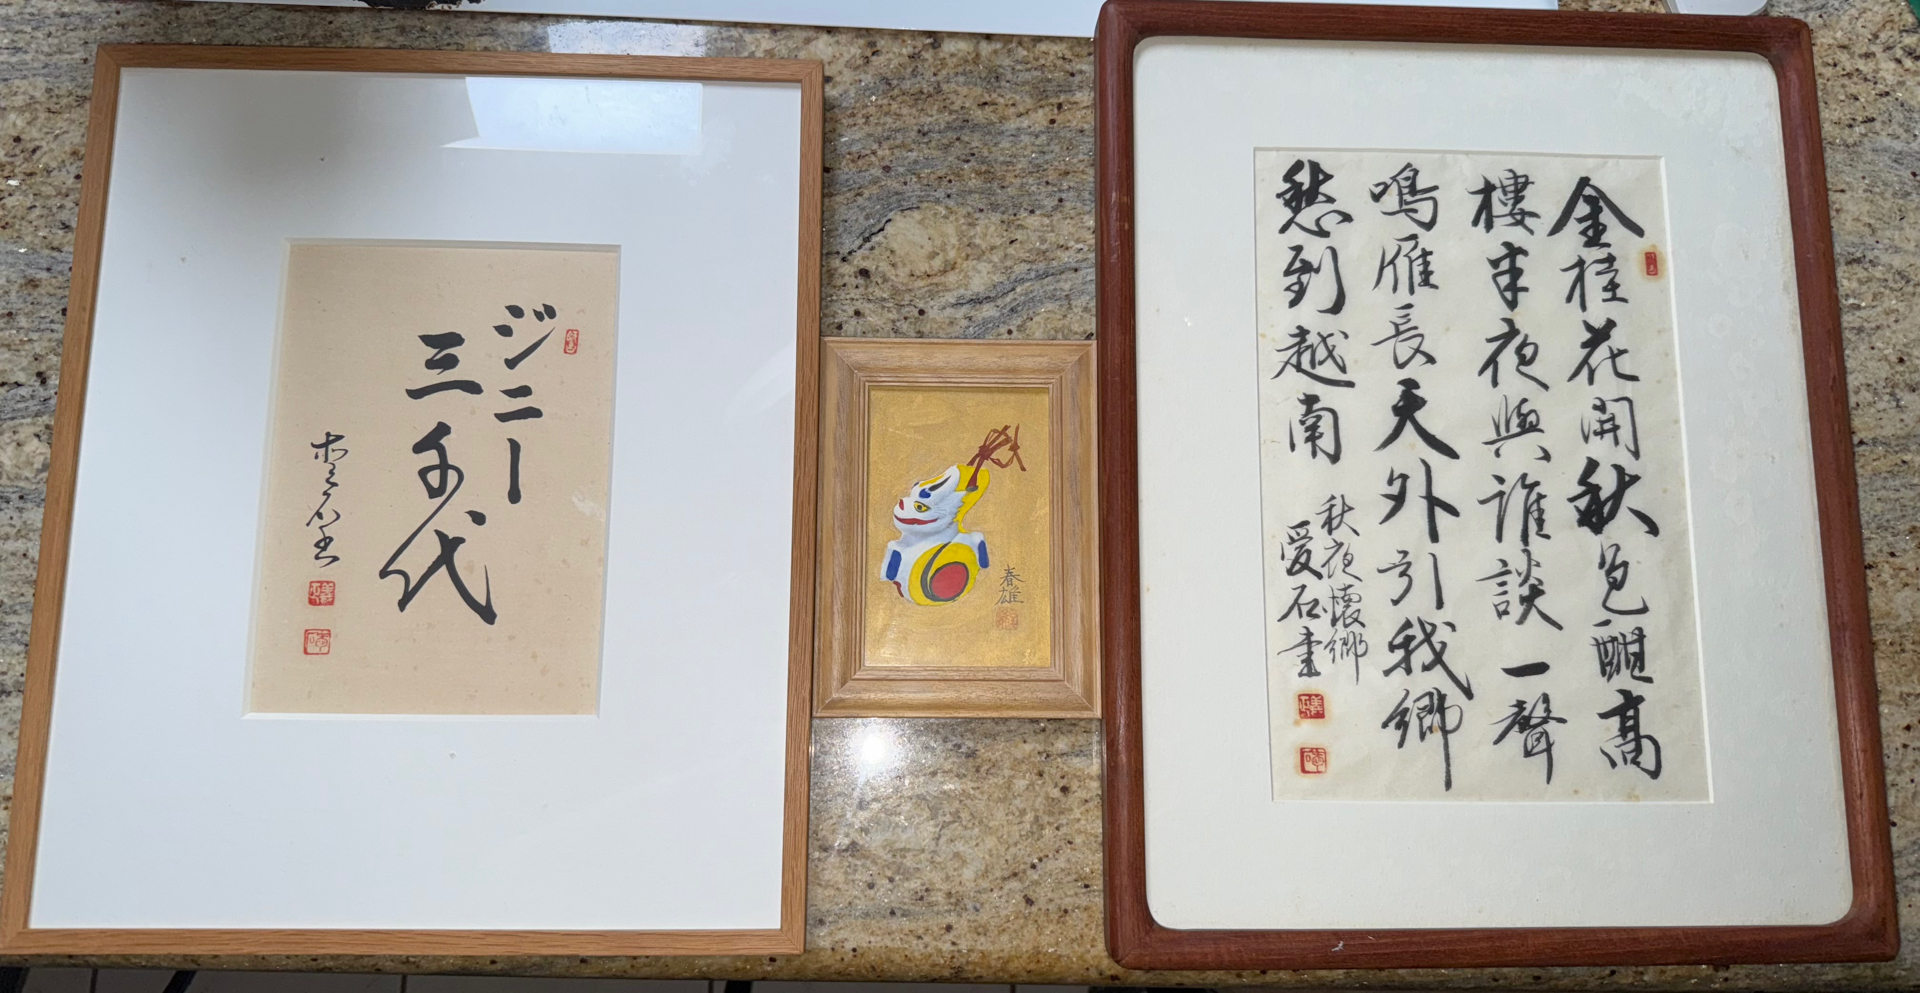 ジニー
三千代
春雄
金桂花開秋色酣高
樓半夜與誰談一聲
鳴雁長天外引我鄉
愁到越南
秋夜懷鄉
爱石書